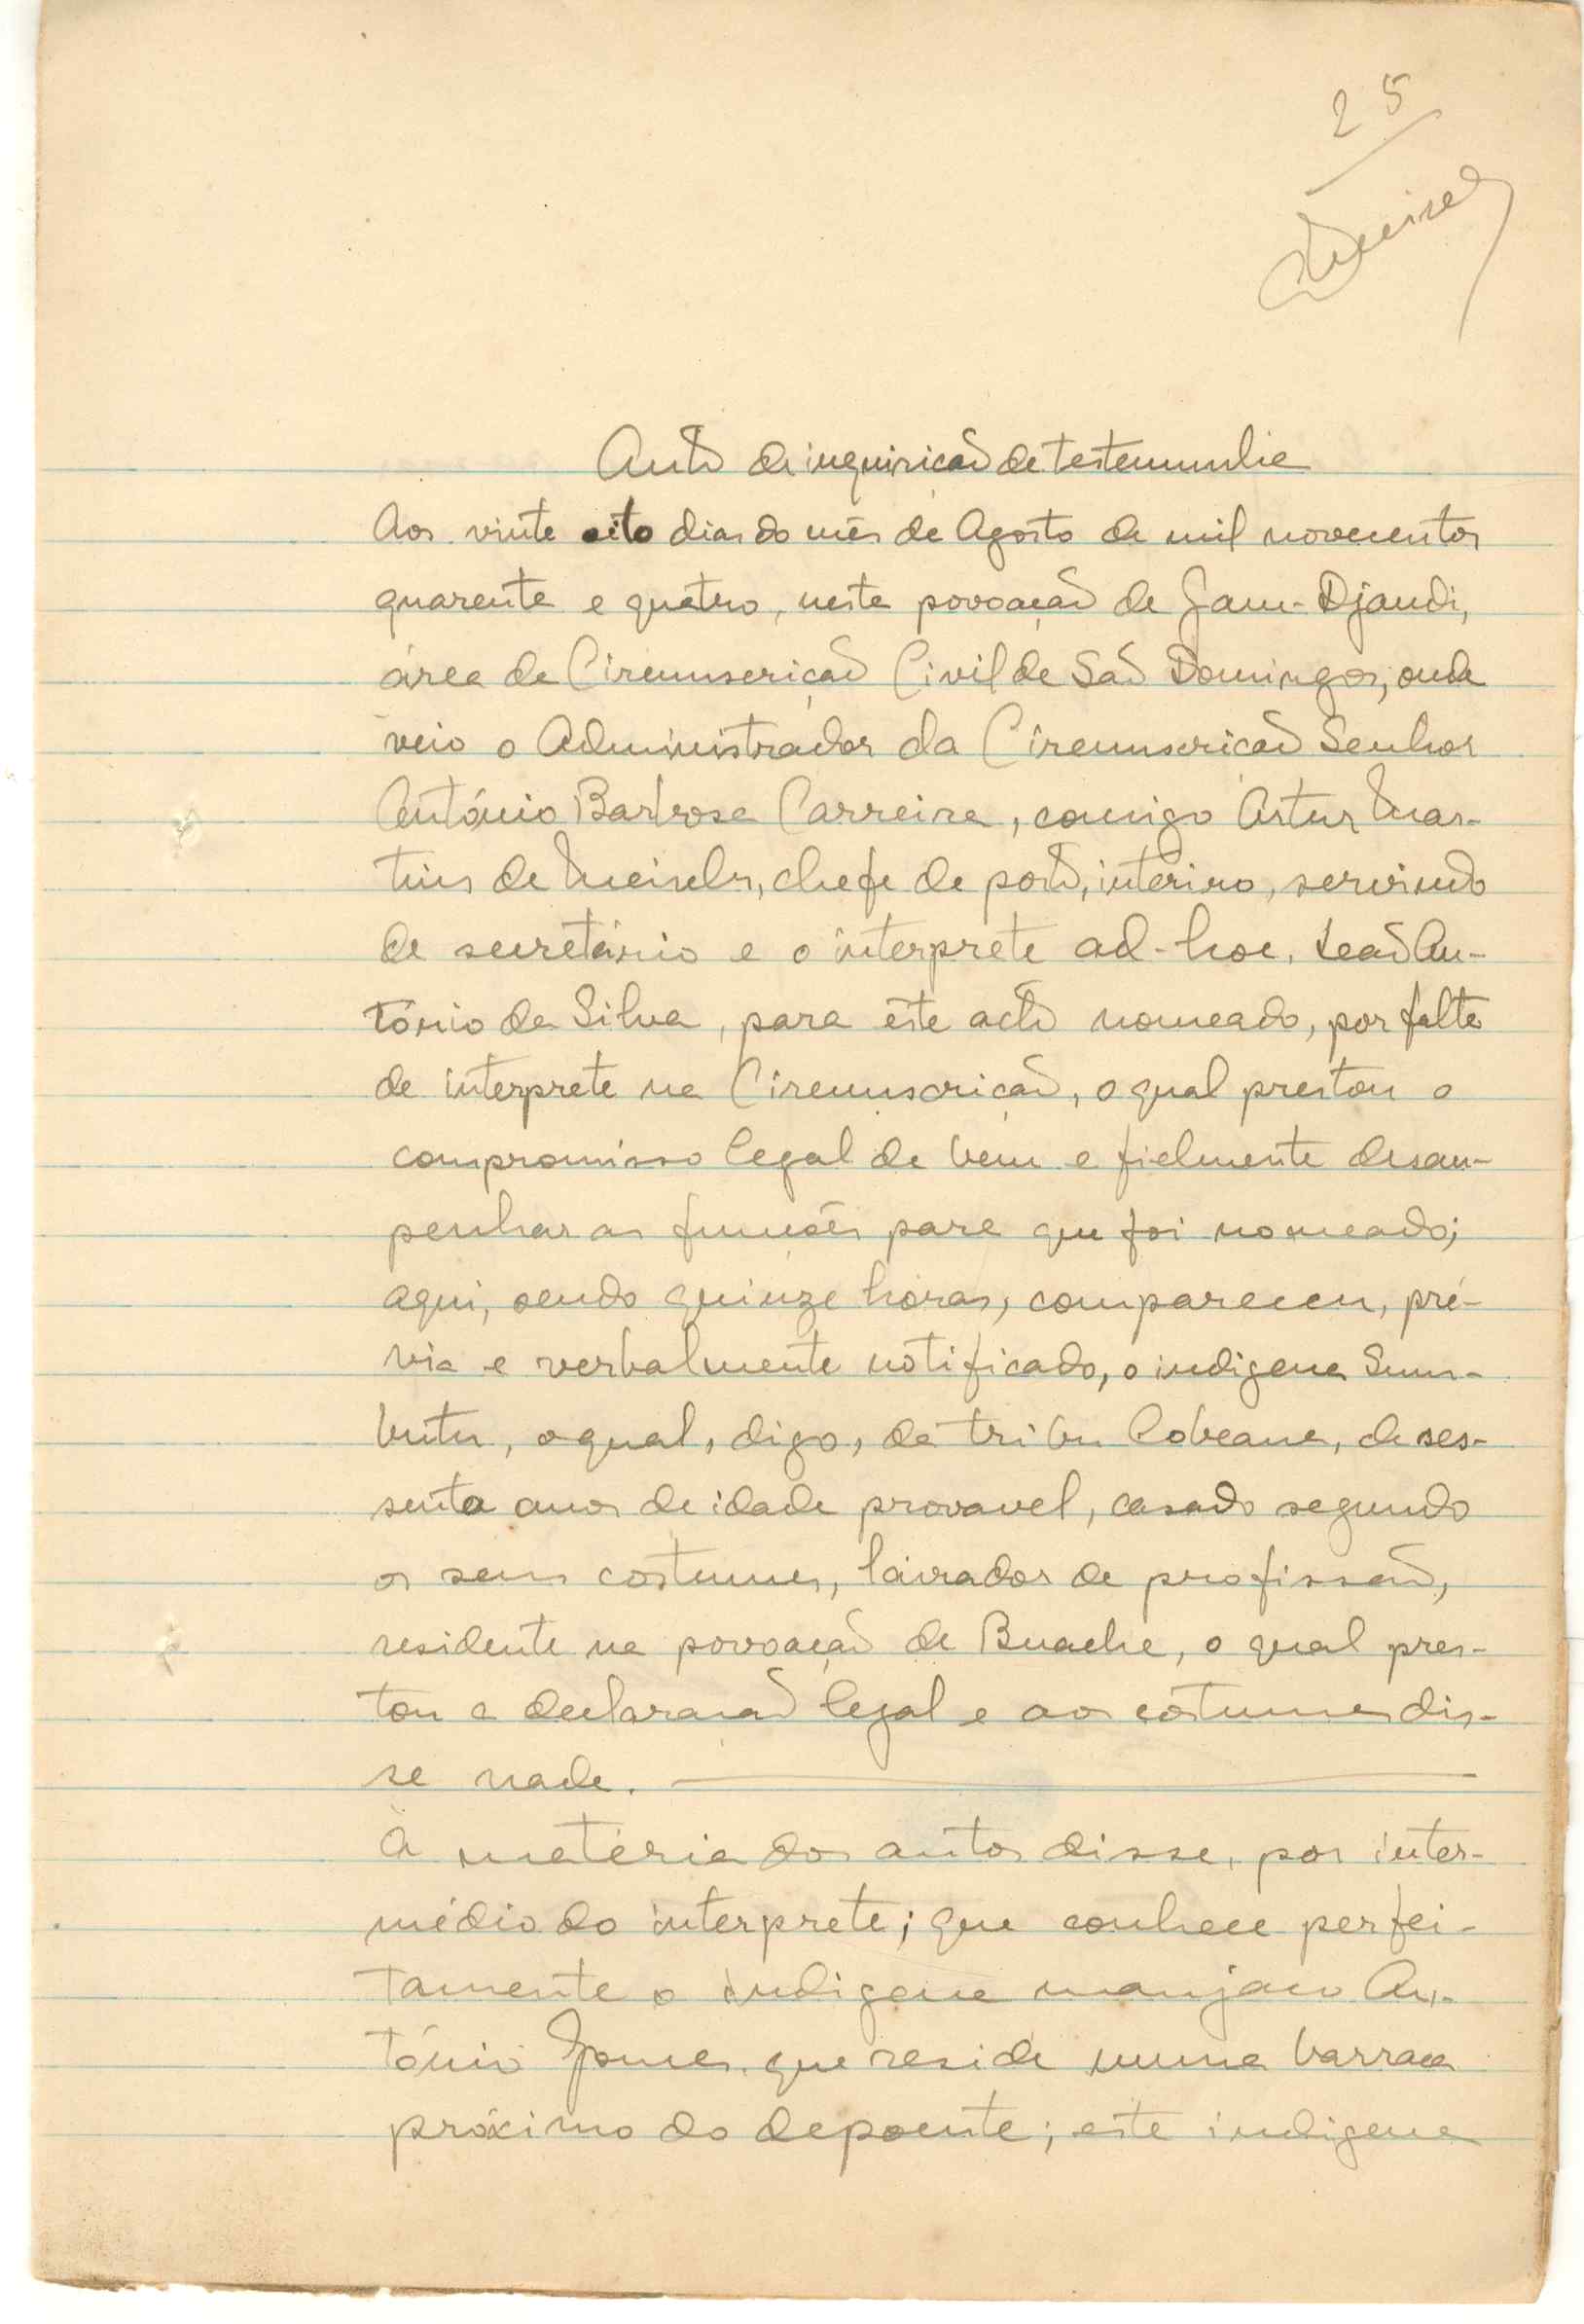 25
Meireles
Auto de inquirição de testemunha
Aos vinte oito dias do mês de Agosto de mil novecentos
quarenta e quatro, nesta povoação de Jam-Djandi,
área da Circunscrição Civil de São Domingos, onde
veio o Administrador da Circunscrição Senhor
António Barbosa Carreira, comigo Artur Mar-
tins de Meireles, chefe de posto, interino, servindo
de secretário e o interprete ad-hoc, Leão An-
tónio da Silva, para êste acto nomeado, por falta
de interprete na Circunscrição, o qual prestou o
compromisso legal de bem e fielmente desem-
penhar as funções para que foi nomeado;
aqui, sendo quinze horas, compareceu, pré-
via e verbalmente notificado, o indigena Sum-
butu, o qual, digo, da tribu Cobeana, de ses-
senta anos de idade provavel, casado segundo
os seus costumes, lavrador de profissão,
residente na povoação de Buache, o qual pres-
tou a declaração legal e aos costumes dis-
se nada.
À matéria dos autos disse, por inter-
médio do interprete; que conhece perfei-
tamente o indigena manjaco An-
tónio Gomes que reside numa barraca
próximo do depoente; este indigena